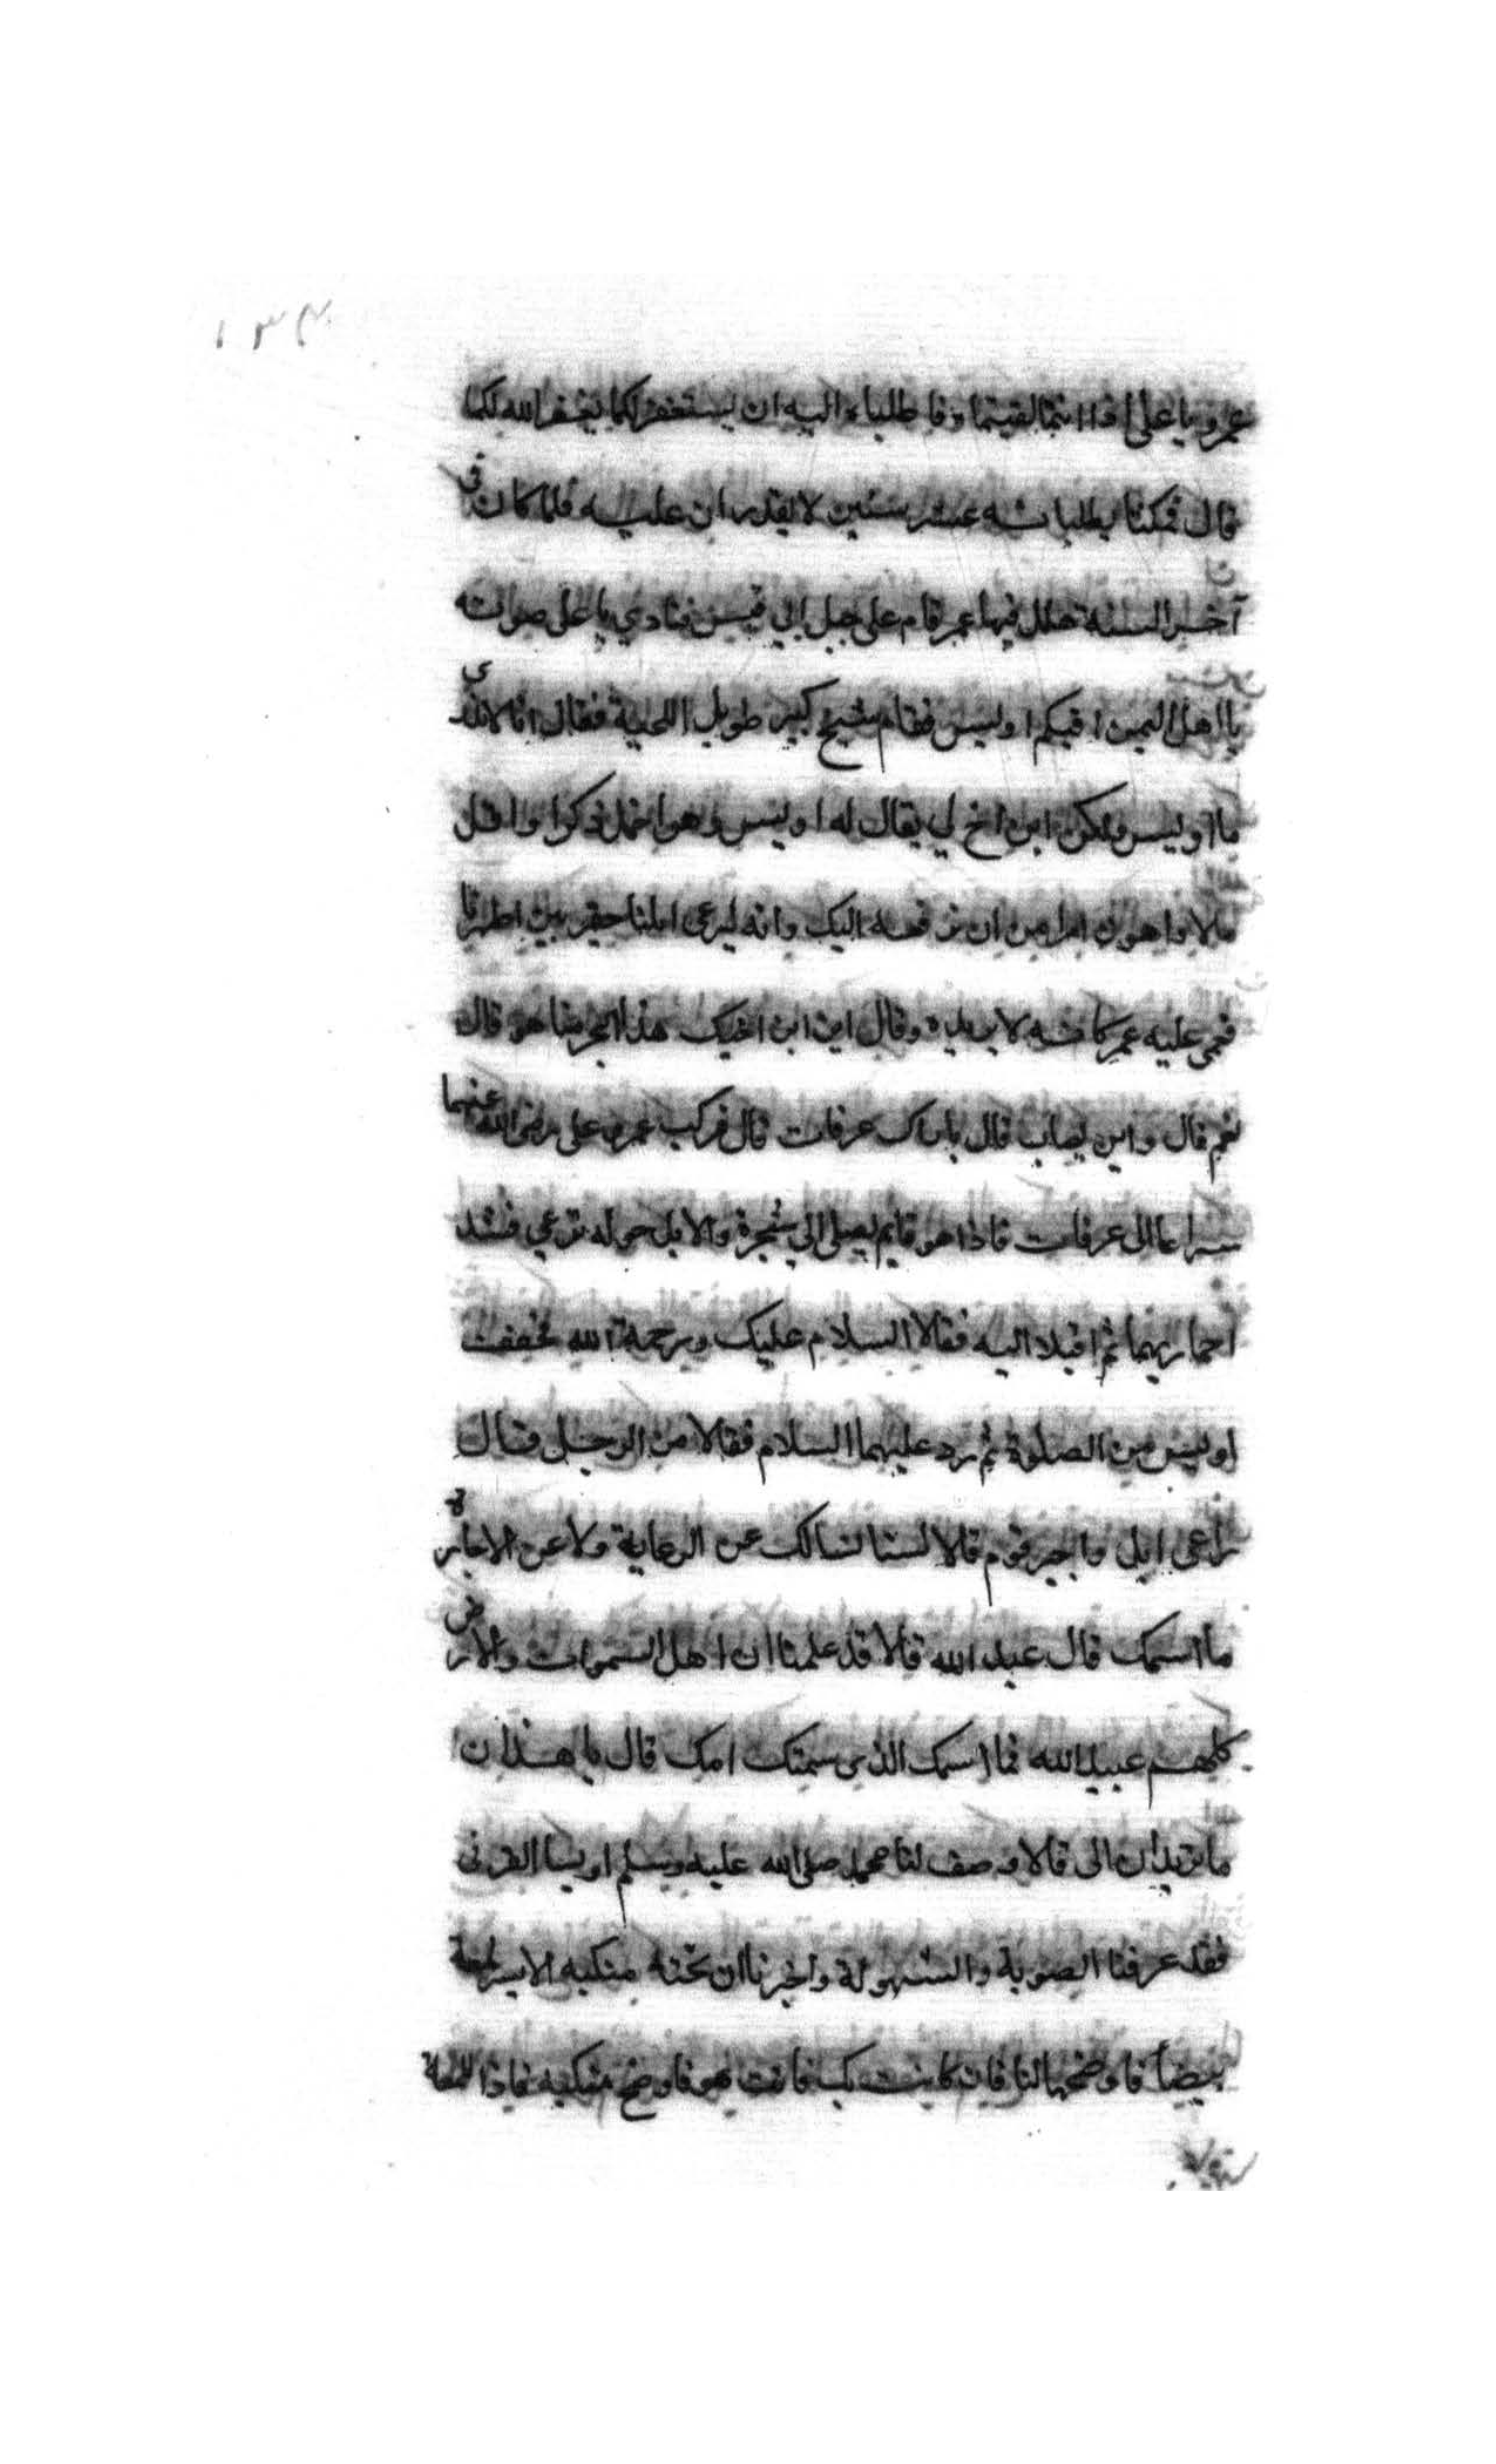 ١٣٢
عمر ويا على اذا انتما لقيتماه فاطلباء اليه ان يستغفر لكما يغفر الله لكما
قال فمكثا يطلبانه عشر سنين لا يقدران عليه فلما كان في
آخر السنة هلك فيها عمر قام على جبل ابي قبيس فنادي باعلى صوته
يا اهل اليمن افيكم اويس فقام شيخ كبير طويل اللحية فقال انا لا ندرى
ما اويس ولكن ابن اخ لي يقال له اويس وهو اخمل ذكرا واقل
مالا واهون امرا من ان نرفعه اليك وانه ليرعى ابلنا حقير بين اظهرنا
فعمى عليه عمر كانه لا يريده وقال اين ابن اخيك هذا بحرمنا هو قال
نعم قال واين يصاب قال باراك عرفات قال فركب عمر وعلى رضى الله عنهما
سراعا الى عرفات فاذا هو قايم يصلى الي شجرة والابل حوله ترعي فشد
احماريهما ثم اقبلا اليه فقالا السلام عليك ورحمة الله فخفف
اويس من الصلوة ثم رد عليهما السلام فقالا من الرجل قال
راعى ابل واجير قوم قالا لسنا نسالك عن الرعاية ولا عن الاجارة
ما اسمك قال عبد الله قالا قد علمنا ان اهل السموات والارض
كلهم عبيد الله فما اسمك الذى سمتك امك قال يا هذان
ما تريدان الى قالا وصف لنا محمد صلى الله عليه وسلم اويسا القرنى
فقد عرفنا الصوبة والشهولة واخبرنا ان تحته منكبه الايسر لمعة
بيضا فاوضحها لنا فان كانت بك فانت هو فاوضح منكبه فاذا اللمعة